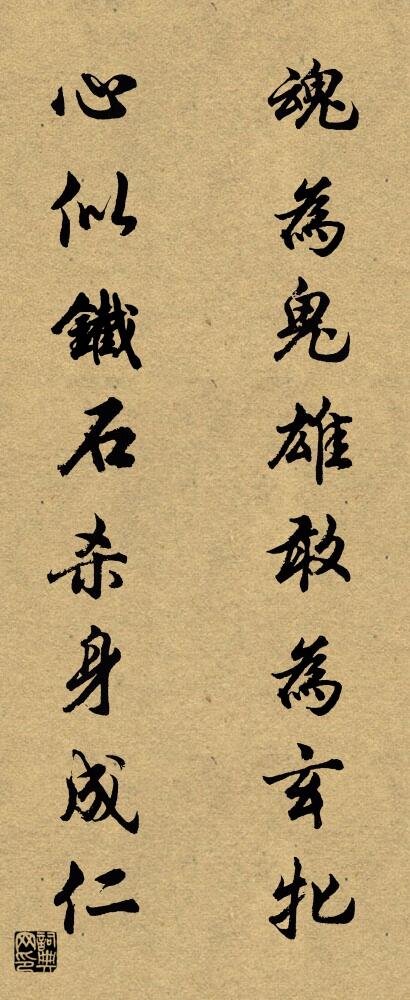 魂為鬼雄敢為玄牝
心似鐵石杀身成仁
詞典网印